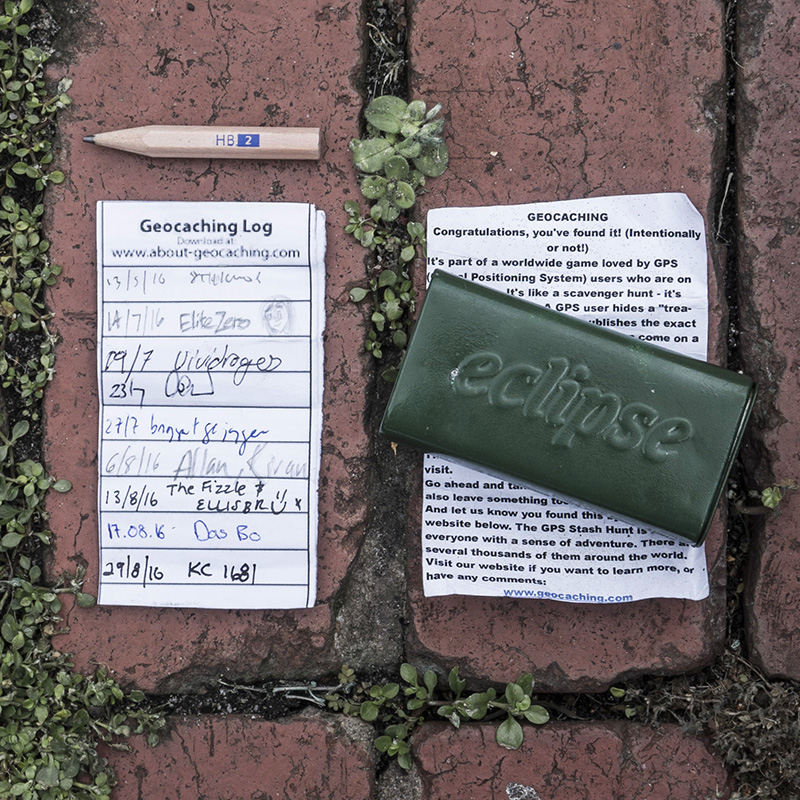 HB 2
Geocaching Log
Download at:
www.about-geocaching.com
13/5/16
14/7/16 EliteZero
19/7
23/7
27/7
6/8/16 Allan, Kieran
13/8/16 The Fizzle &
ELLISBR x
17.08.16 Das Bo
29/8/16 KC 1681
GEOCACHING
Congratulations, you've found it! (Intentionally
or not!)
It's part of a worldwide game loved by GPS
Positioning System) users who are on
It's like a scavenger hunt - it's
A GPS user hides a "trea-
the exact
come on a
eclipse
visit.
Go ahead and
also leave something
And let us know you found this
website below. The GPS Stash Hunt is
everyone with a sense of adventure. There
several thousands of them around the world.
Visit our website if you want to learn more, or
have any comments:
www.geocaching.com